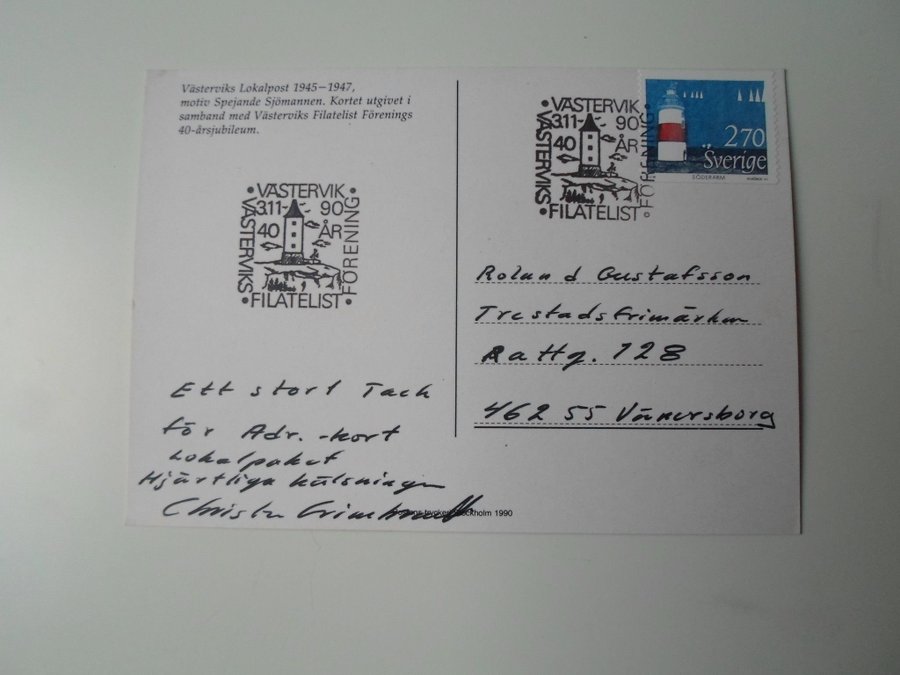 Västerviks Lokalpost 1945–1947,
motiv Spejande Sjömannen. Kortet utgivet i
samband med Västerviks Filatelist Förenings
40-årsjubileum.
•VÄSTERVIK•
3.11 90
40 ÅR
VÄSTERVIKS
•FILATELIST•
FÖRENING
•VÄSTERVIK•
3.11 90
40 ÅR
VÄSTERVIKS
•FILATELIST•
FÖRENING
270
Sverige
SÖDERARM
Roland Gustafsson
Trestadsfrimärken
Rattg. 128
462 55 Vänersborg
Ett stort Tack
för Adr.-kort
Lokalpaket
Hjärtliga hälsningar
Christer
Stockholm 1990